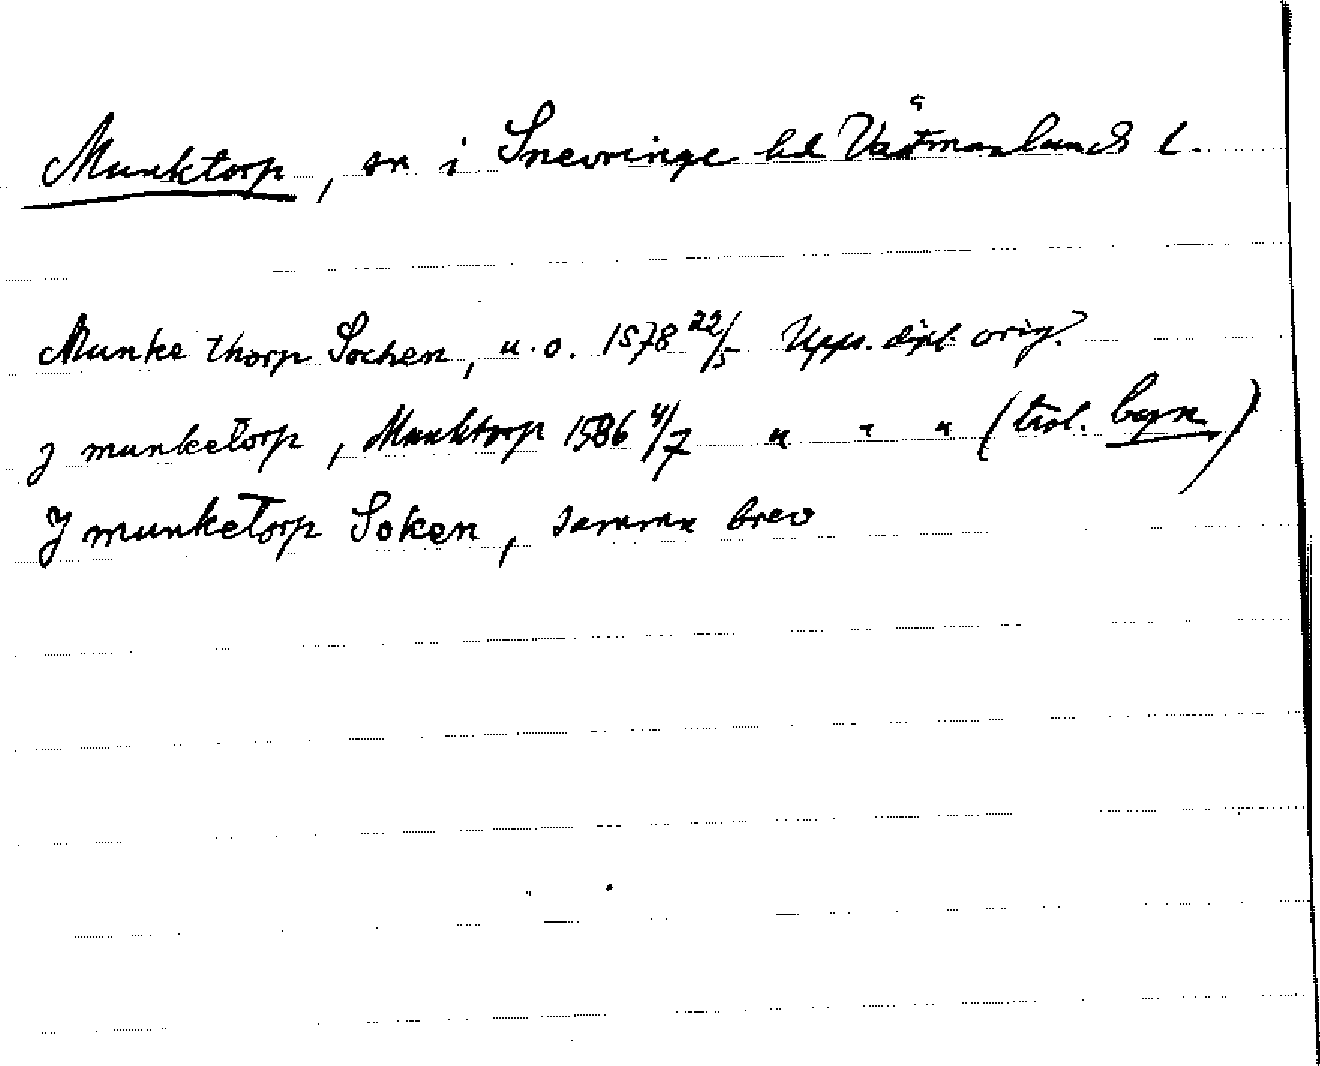 Munktorp, sn i Snevringe hd Västmanlands l.
Munke thorp Sochen, u.o. 1578 22/5 Upps. dipl. orig.
J munketorp, Munktorp 1586 4/7 " " " (trol. byn)
J munketorp Soken, samma brev